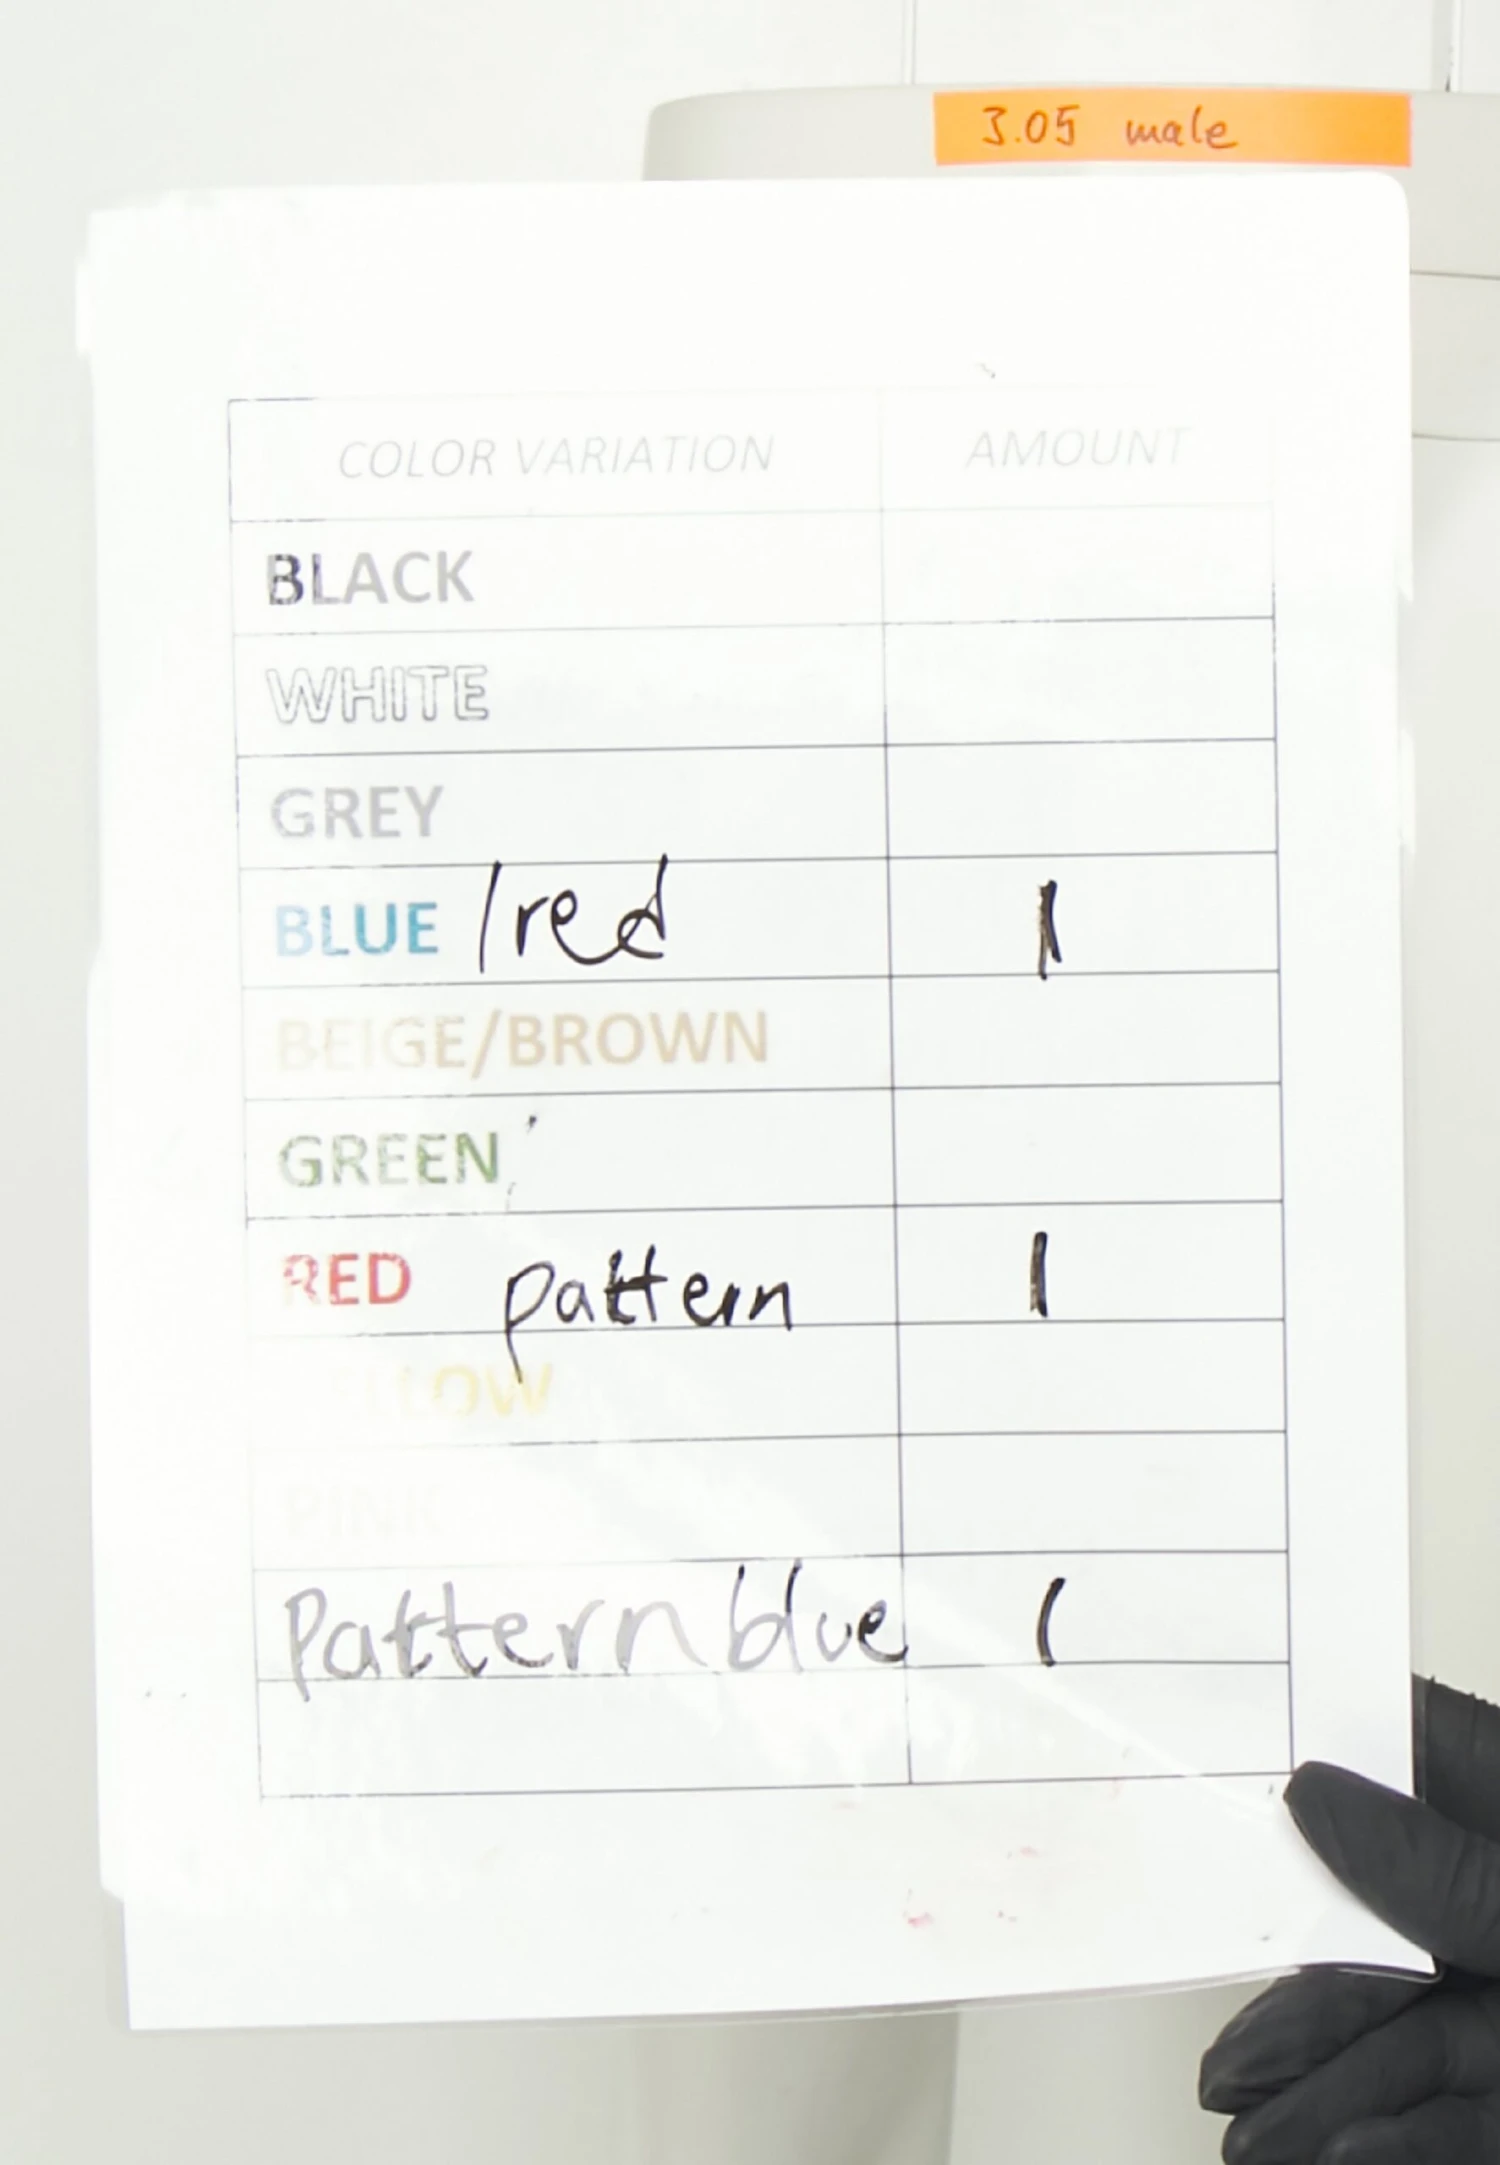 3.05 male
COLOR VARIATION AMOUNT
BLACK
WHITE
GREY
BLUE /red 1
BEIGE/BROWN
GREEN
RED pattern 1
YELLOW
PINK
Pattern blue 1